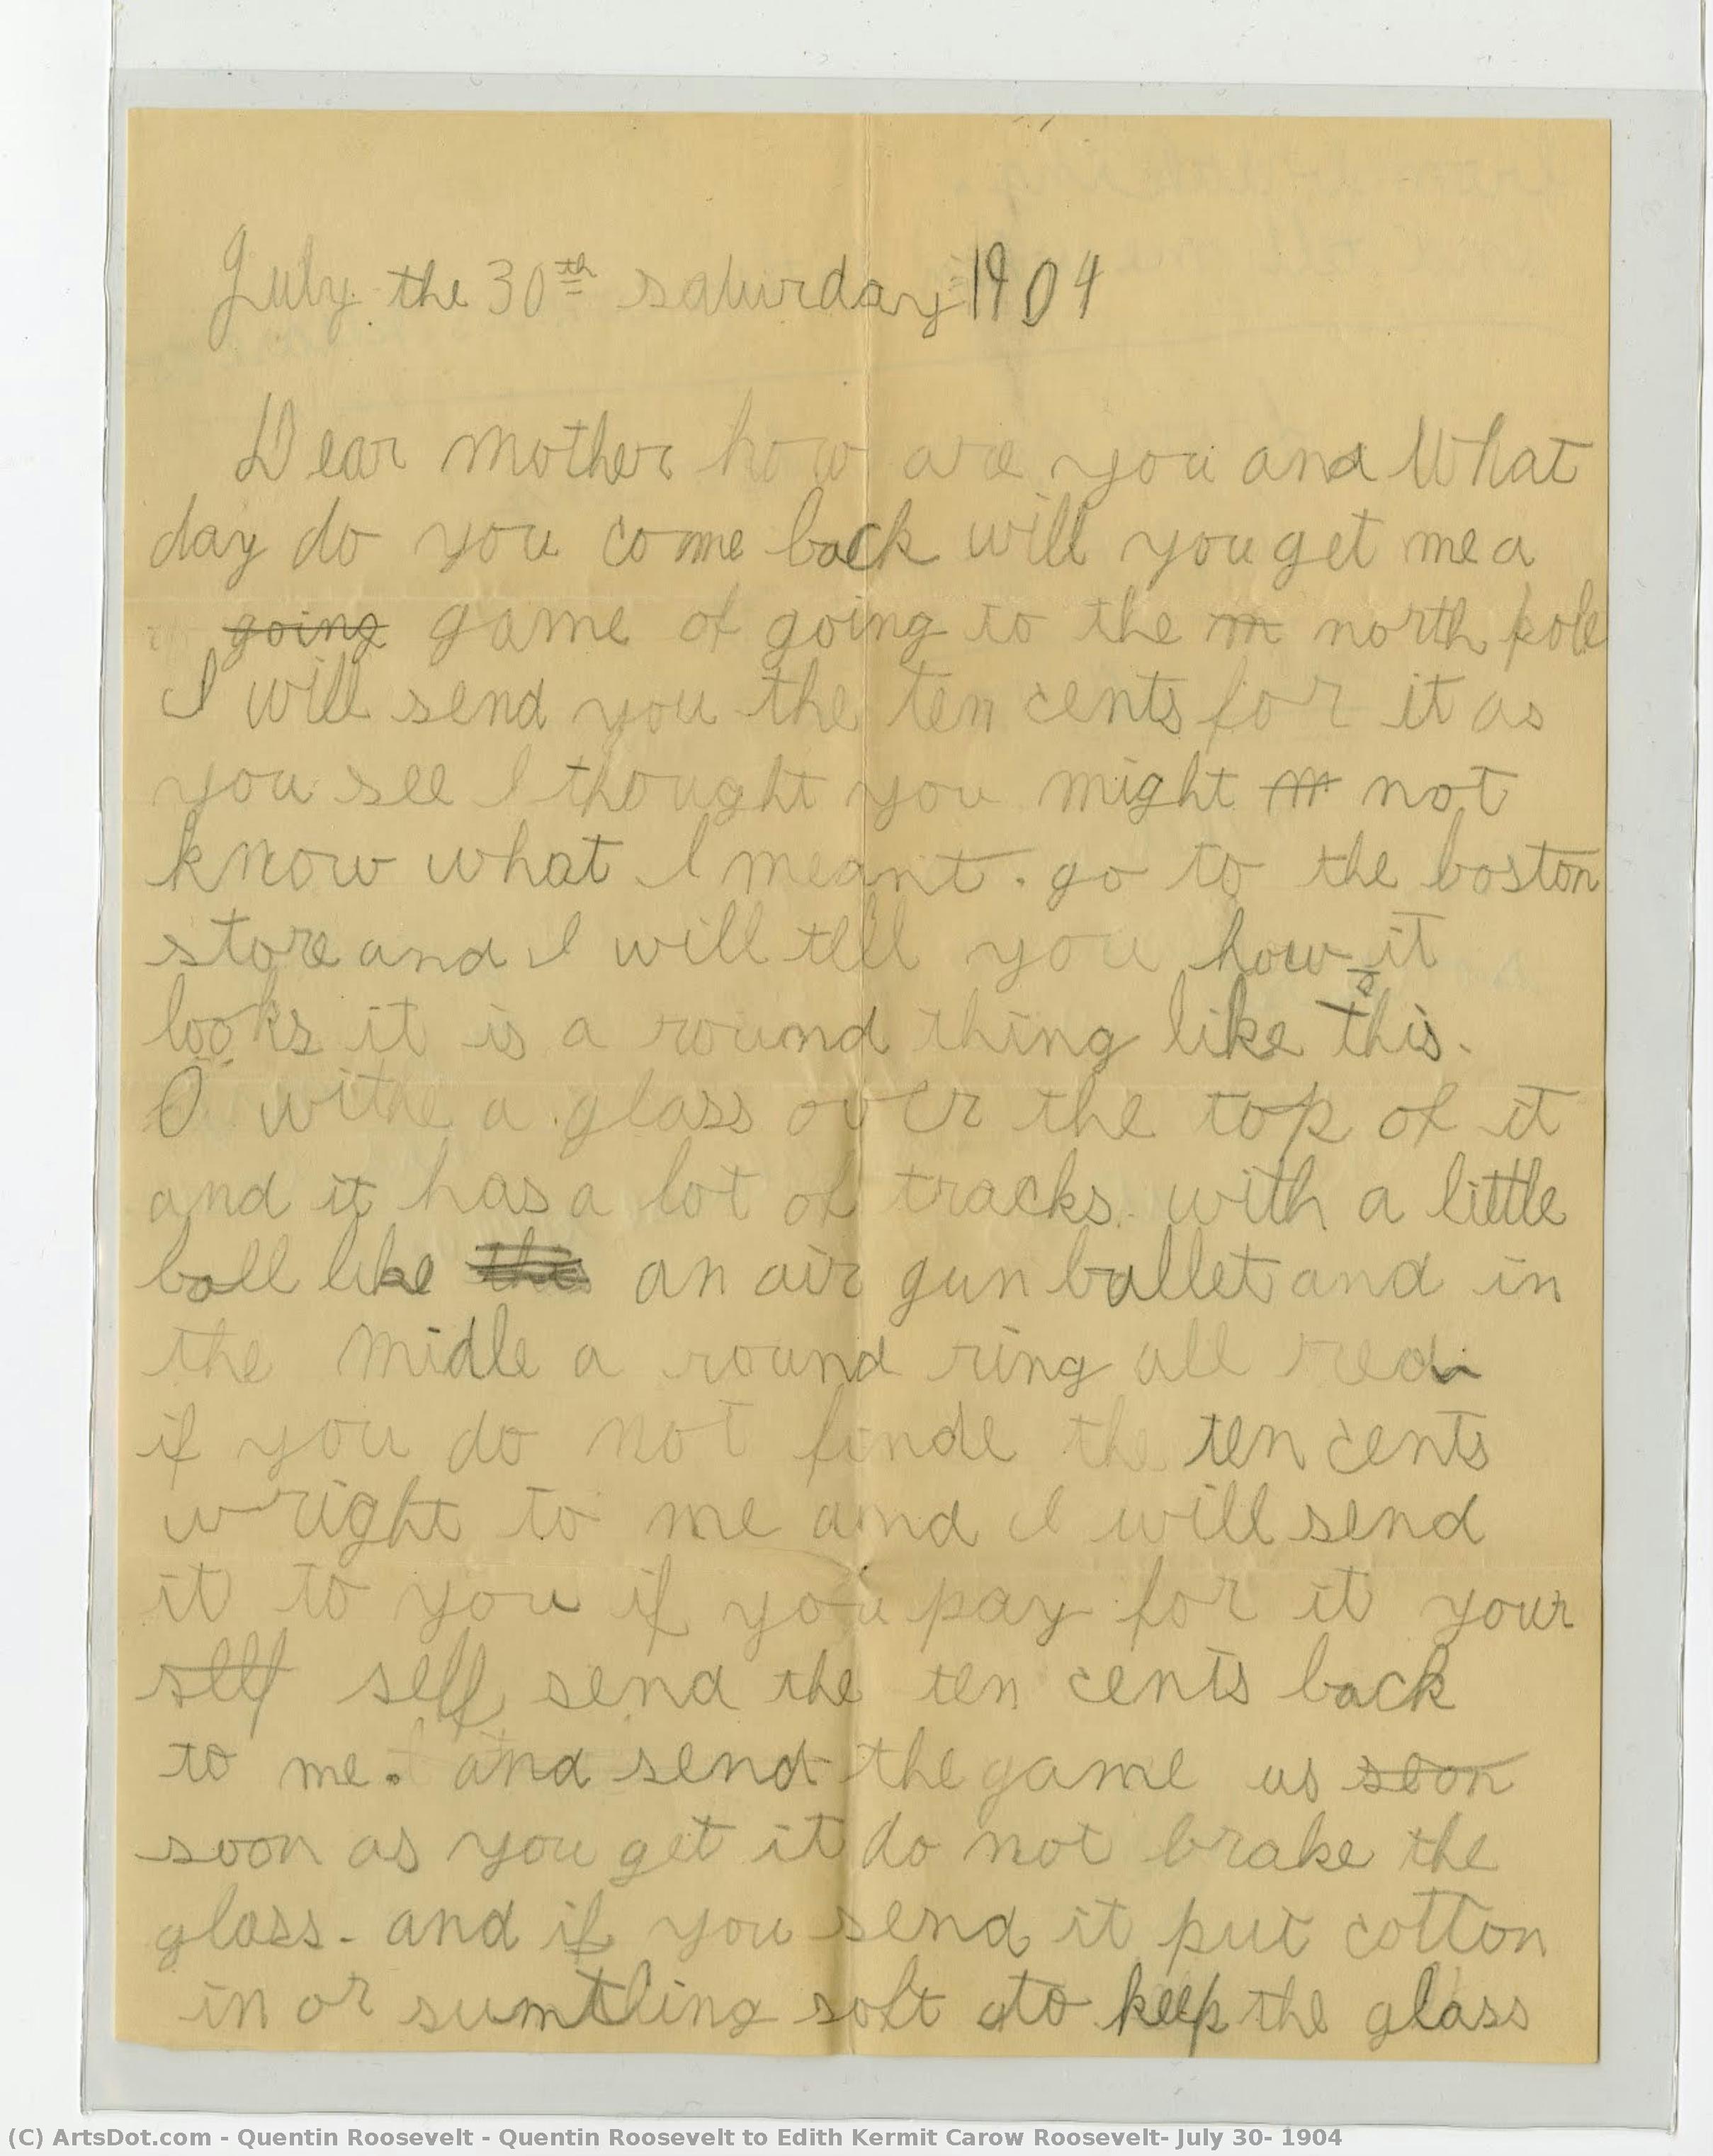 July the 30th saturday 1904
Dear mother how are you and What
day do you come back will you get me a
going game of going to the m north pole
I will send you the ten cents for it as
you see I thought you might m not
know what I meant. go to the boston
store and I will tell you how it
looks it is a round thing like this.
O withe a glass over the top of it
and it has a lot of tracks. with a little
ball like this an air gun bullet and in
the midle a round ring all red
if you do not finde the ten cents
wright to me and I will send
it to you if you pay for it your
self self send the ten cents back
to me. and send the game as soon
soon as you get it do not brake the
glass. and if you send it put cotton
in or sumthing soft to keep the glass
(C) ArtsDot.com - Quentin Roosevelt - Quentin Roosevelt to Edith Kermit Carow Roosevelt- July 30- 1904